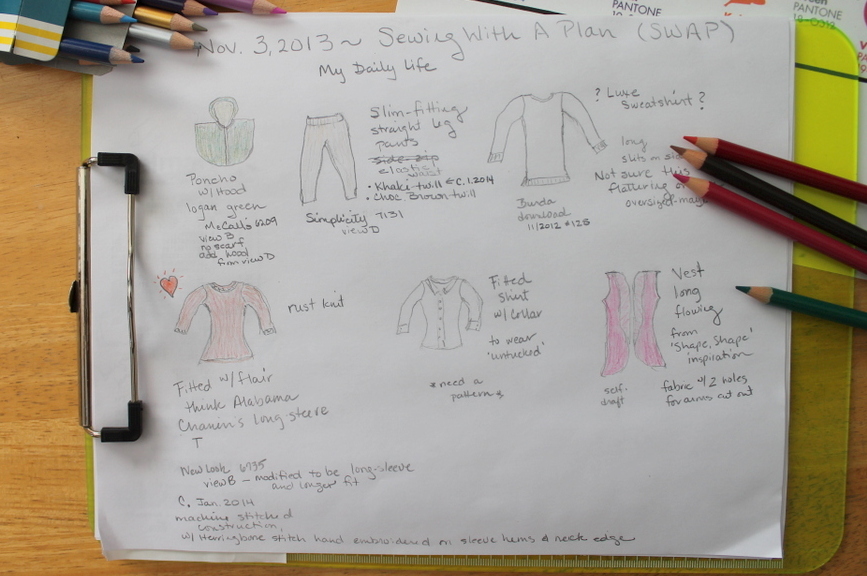 Nov. 3, 2013 ~ Sewing With A Plan (SWAP)
My Daily Life
Poncho
w/ Hood
logan green
McCall's 6209
view B
no scarf
add hood
from view D
Slim-fitting
straight leg
pants
side zip
elastic
waist
• Khaki twill ← C. 1.2014
• Choc Brown twill
Simplicity 7131
view D
? Luxe
Sweatshirt ?
long
slits on
Not sure this
flattering
oversized
Burda
download
11/2012 #128
rust knit
Fitted w/ flair
think Alabama
Chanin's long sleeve
T
New Look 6735
view B - modified to be long-sleeve
and longer fit
C. Jan. 2014
machine stitched
construction,
w/ Herringbone stitch hand embroidered on sleeve hems & neck edge
Fitted
shirt
w/ collar
to wear
'untucked'
*need a
pattern*
Vest
long
flowing
from
'Shape, Shape'
inspiration
self-
draft
fabric w/ 2 holes
for arms cut out
PANTONE
PANTONE